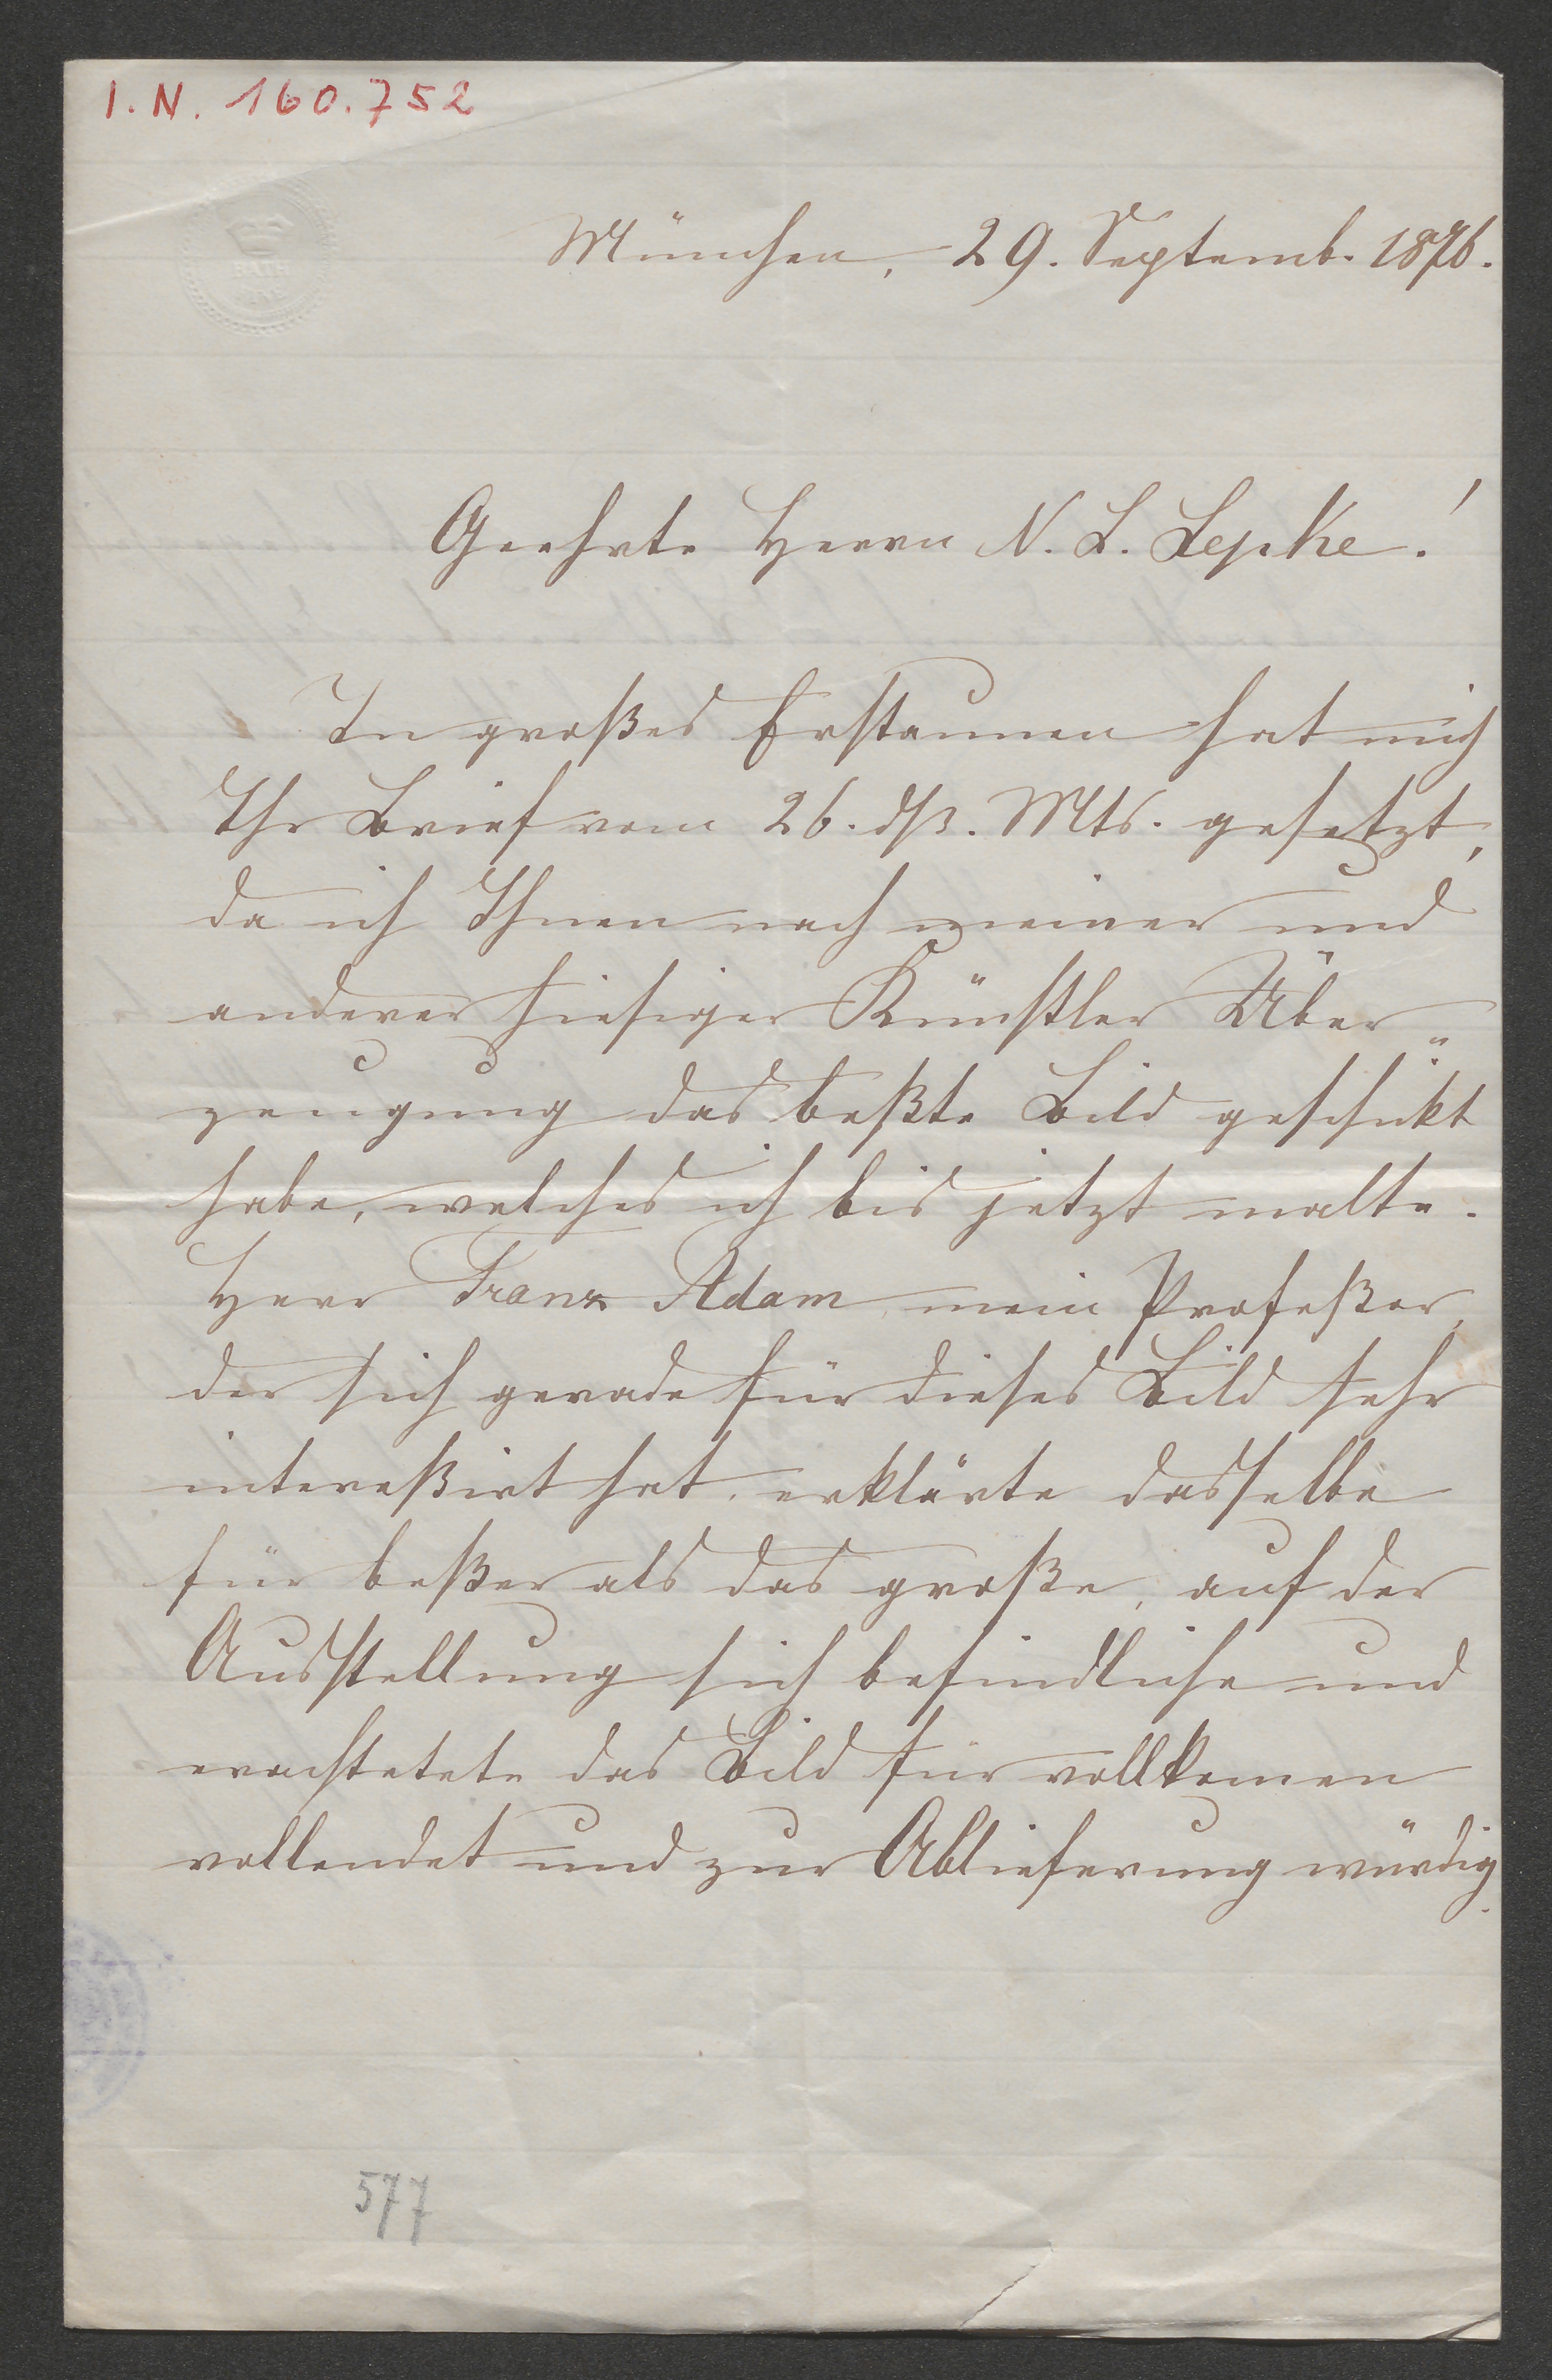 I. N. 160.752
BATH
München, 29. Septemb. 1876.
Geehrte Herrn N. L. Lepke!
In großes Erstaunen hat mich
Ihr Brief vom 26. dß. Mts. gesetzt,
da ich Ihnen nach meiner und
anderer hiesiger Künstler Über„
zeugung das beßte Bild geschikt
habe, welches ich bis jetzt malte.
Herr Franz Adam, mein Profeßor,
der sich gerade für dieses Bild sehr
intereßirt hat, erklärte dasselbe
für beßer als das große, auf der
Ausstellung sich befindliche und
erachtete das Bild für vollkomen
vollendet und zur Ablieferung würdig.
577